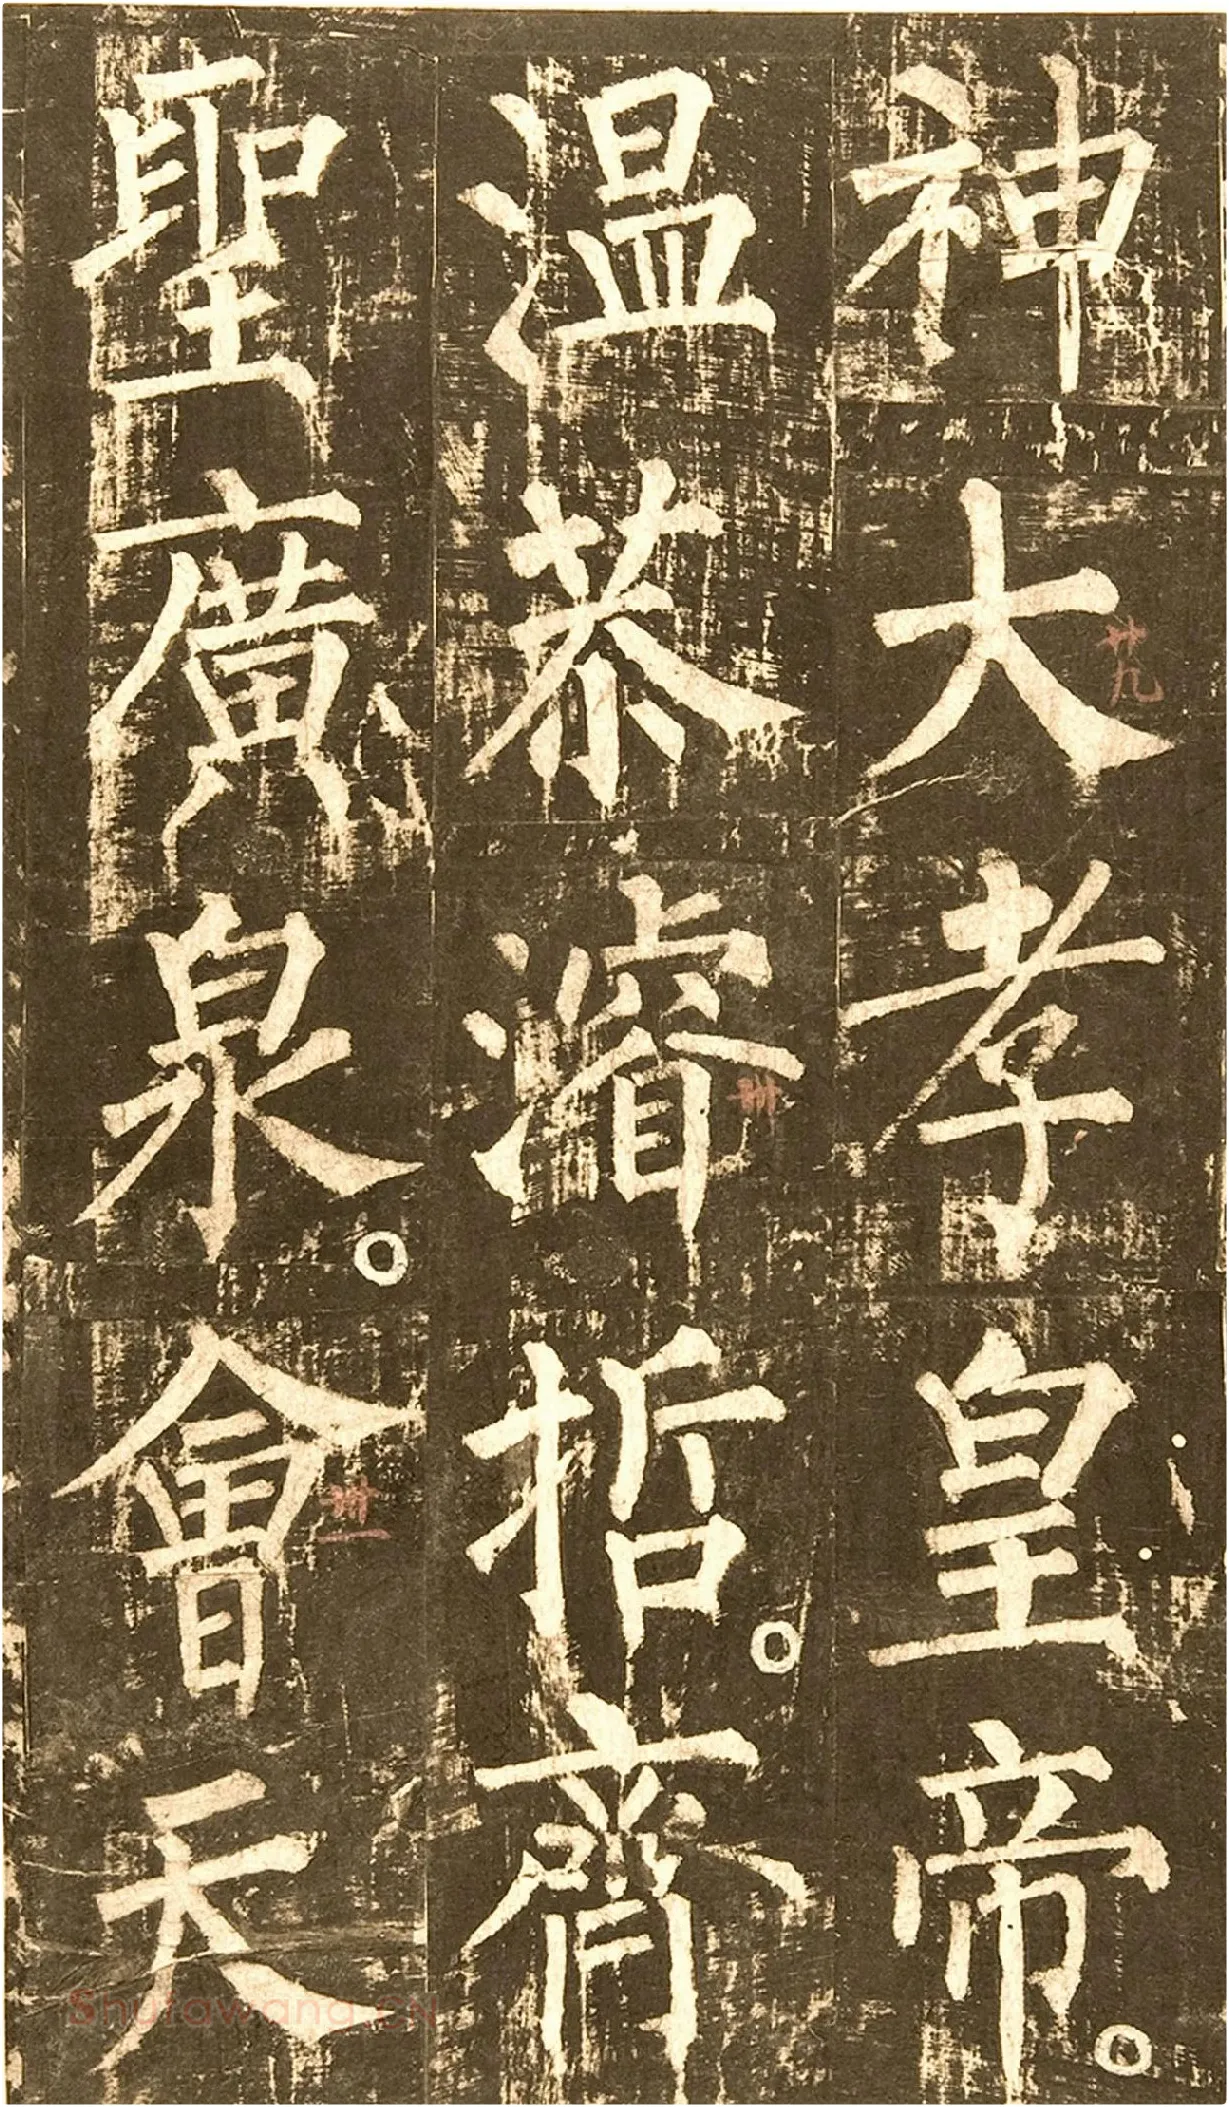 神大孝皇帝。
温恭濬哲。齊
聖廣泉。會天
廿九
卅
卅一
Shufawang.CN